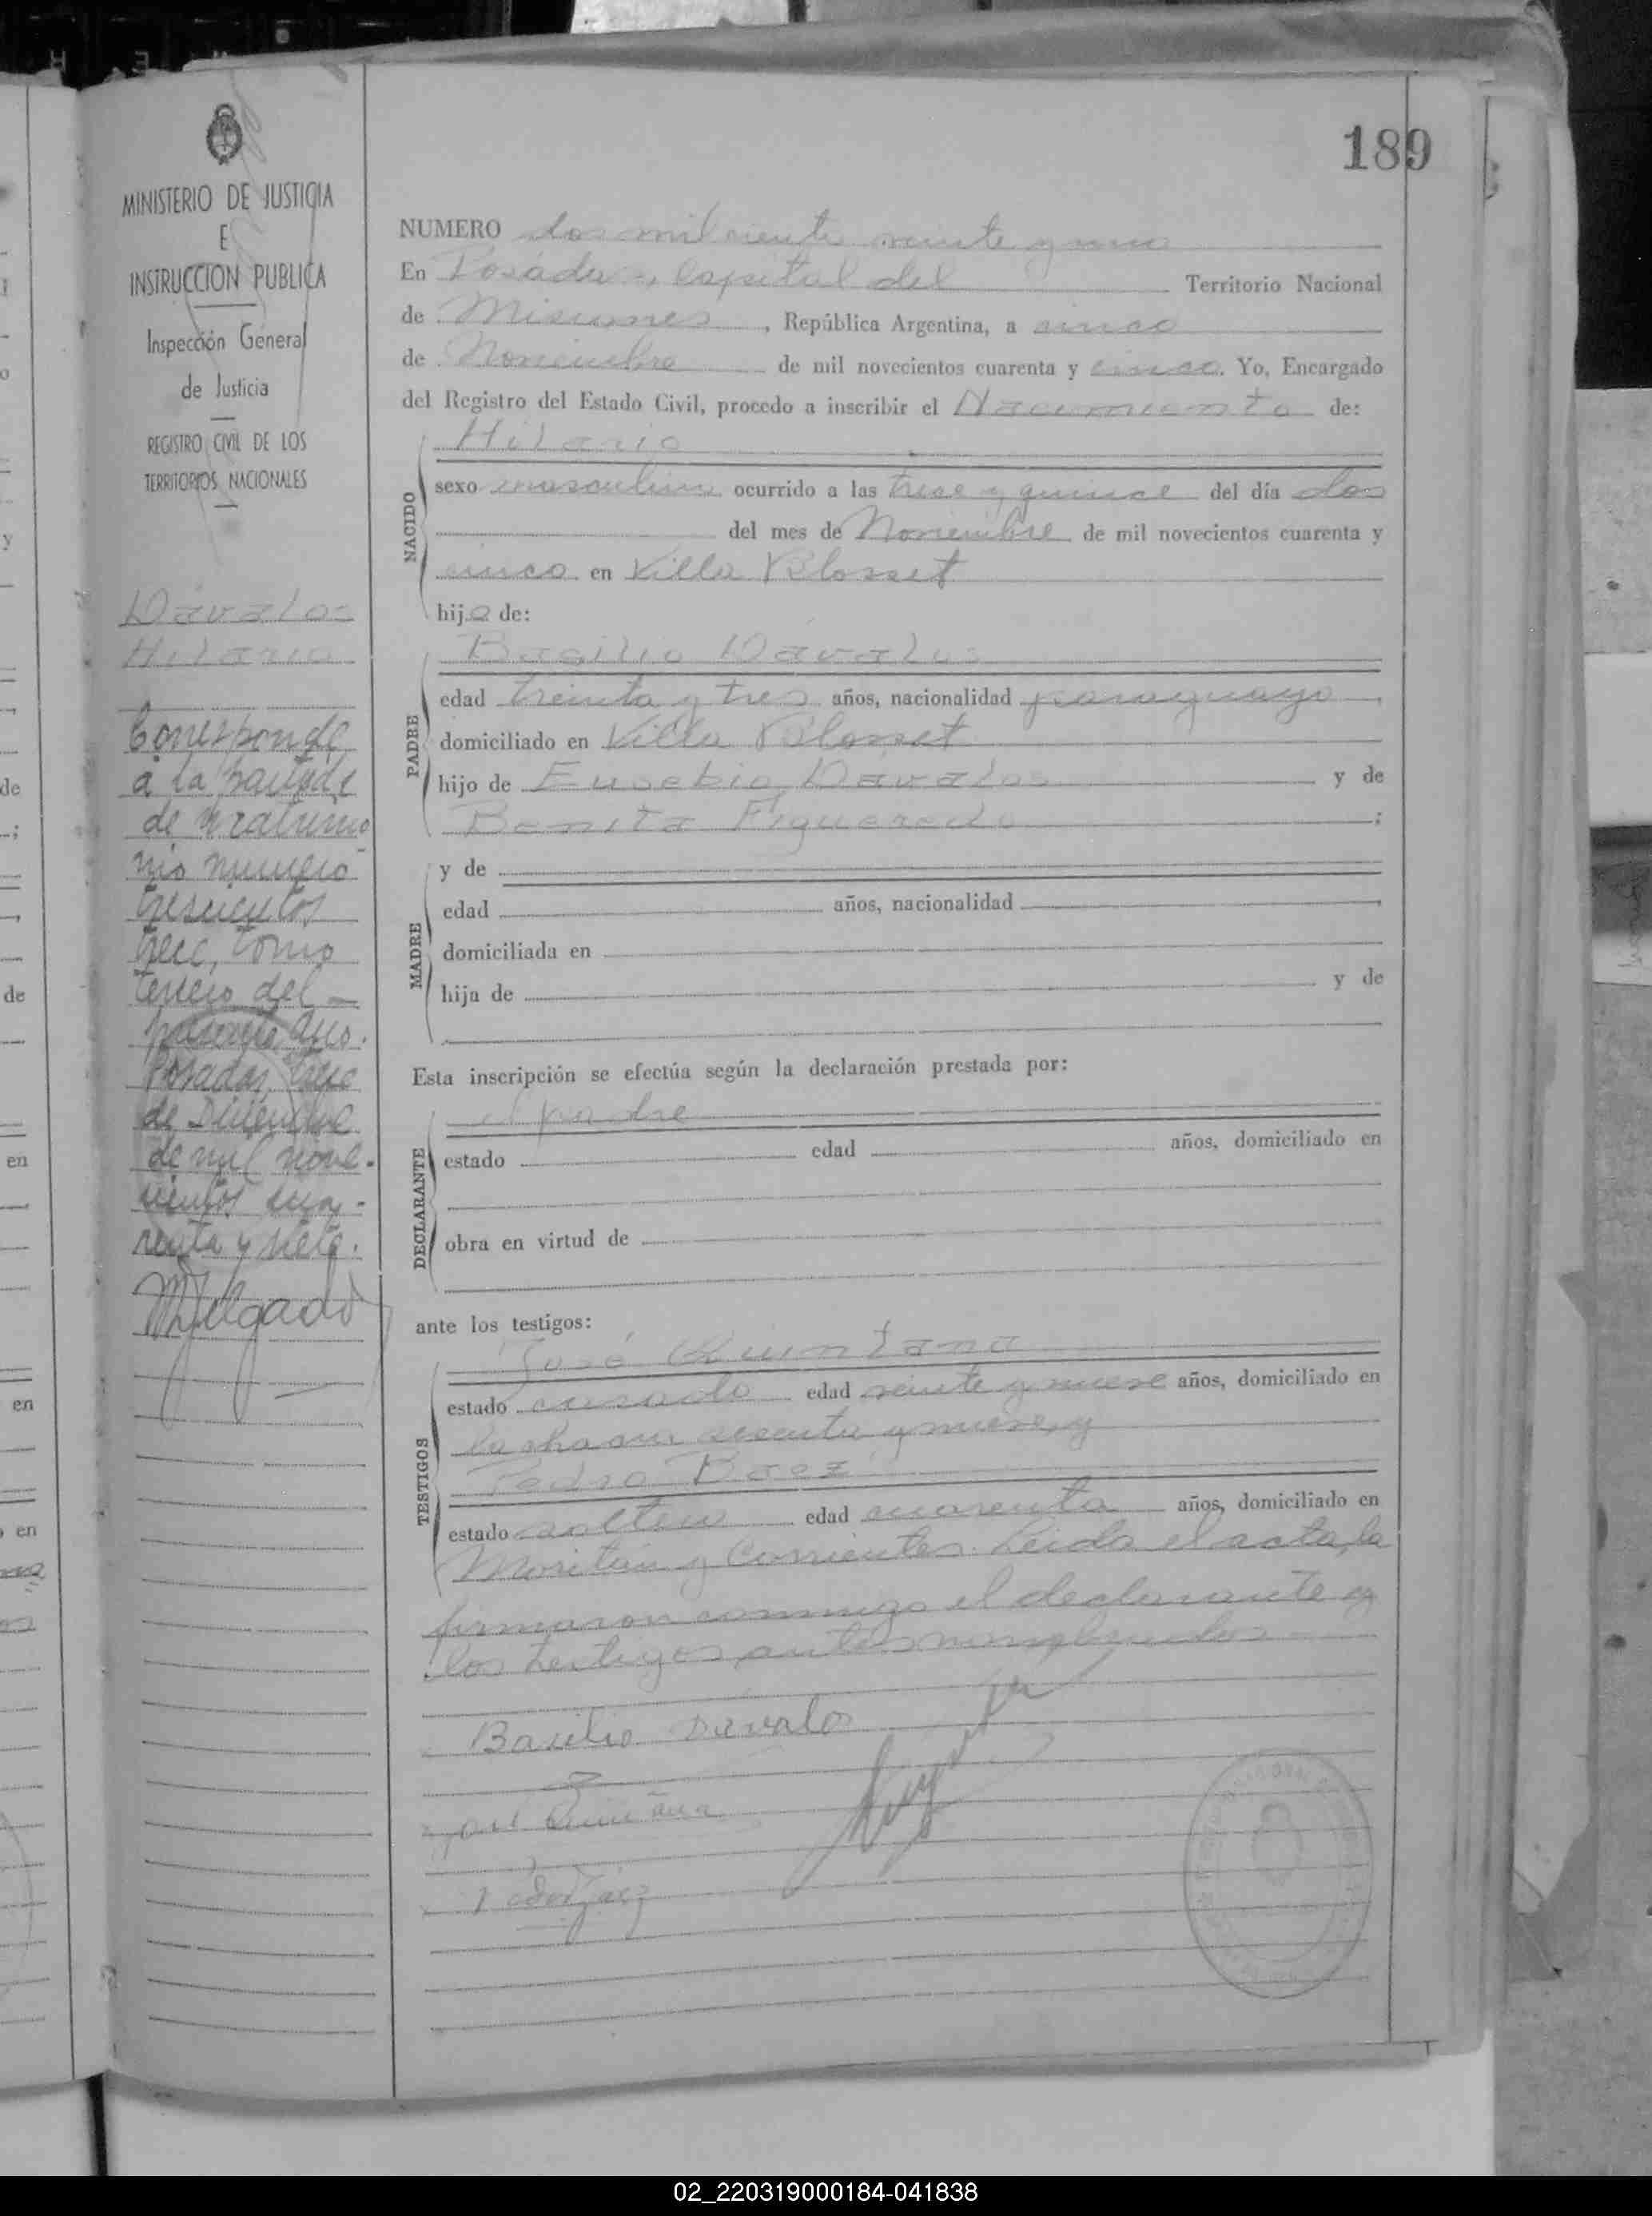 189
MINISTERIO DE JUSTICIA
E
INSTRUCCION PUBLICA
Inspección General
de Justicia
REGISTRO CIVIL DE LOS
TERRITORIOS NACIONALES
Dávalos
Hilario
Corresponde
a la partida
de matrimo
nio numero
trescientos
trece, tomo
tercero del
presente año.
Posadas, trece
de Diciembre
de mil nove-
cientos cua-
renta y siete.
NUMERO dos mil ciento veinte y uno
En Posadas, Capital del Territorio Nacional
de Misiones, República Argentina, a cinco
de Noviembre de mil novecientos cuarenta y cinco. Yo, Encargado
del Registro del Estado Civil, procedo a inscribir el Nacimiento de:
NACIDO
Hilario
sexo masculino ocurrido a las trece y quince del día dos
del mes de Noviembre de mil novecientos cuarenta y
cinco en Villa Blosset
hijo de:
PADRE
Basilio Dávalos
edad treinta y tres años, nacionalidad paraguayo,
domiciliado en Villa Blosset
hijo de Eusebio Dávalos y de
Benita Figueredo;
MADRE
y de
edad años, nacionalidad ,
domiciliada en
hija de y de
Esta inscripción se efectúa según la declaración prestada por:
DECLARANTE
el padre
estado edad años, domiciliado en
obra en virtud de
ante los testigos:
TESTIGOS
José Quintana
estado casado edad veinte y nueve años, domiciliado en
la chacra sesenta y nueve y
Pedro Baez
estado soltero edad cuarenta años, domiciliado en
Moritán y Corrientes. Leida el acta, la
firmaron conmigo el declarante y
los testigos antes nombrados
Basilio Dávalo
02_220319000184-041838